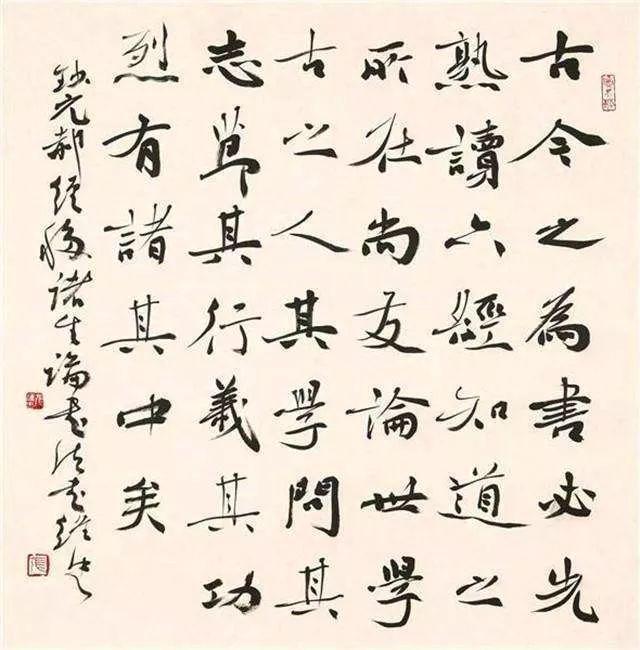 古今之為書必先
熟讀六經知道之
所在尚友論世學
古之人其學問其
志節其行義其功
烈有諸其中矣
鈔元郝經移諸生論書法書